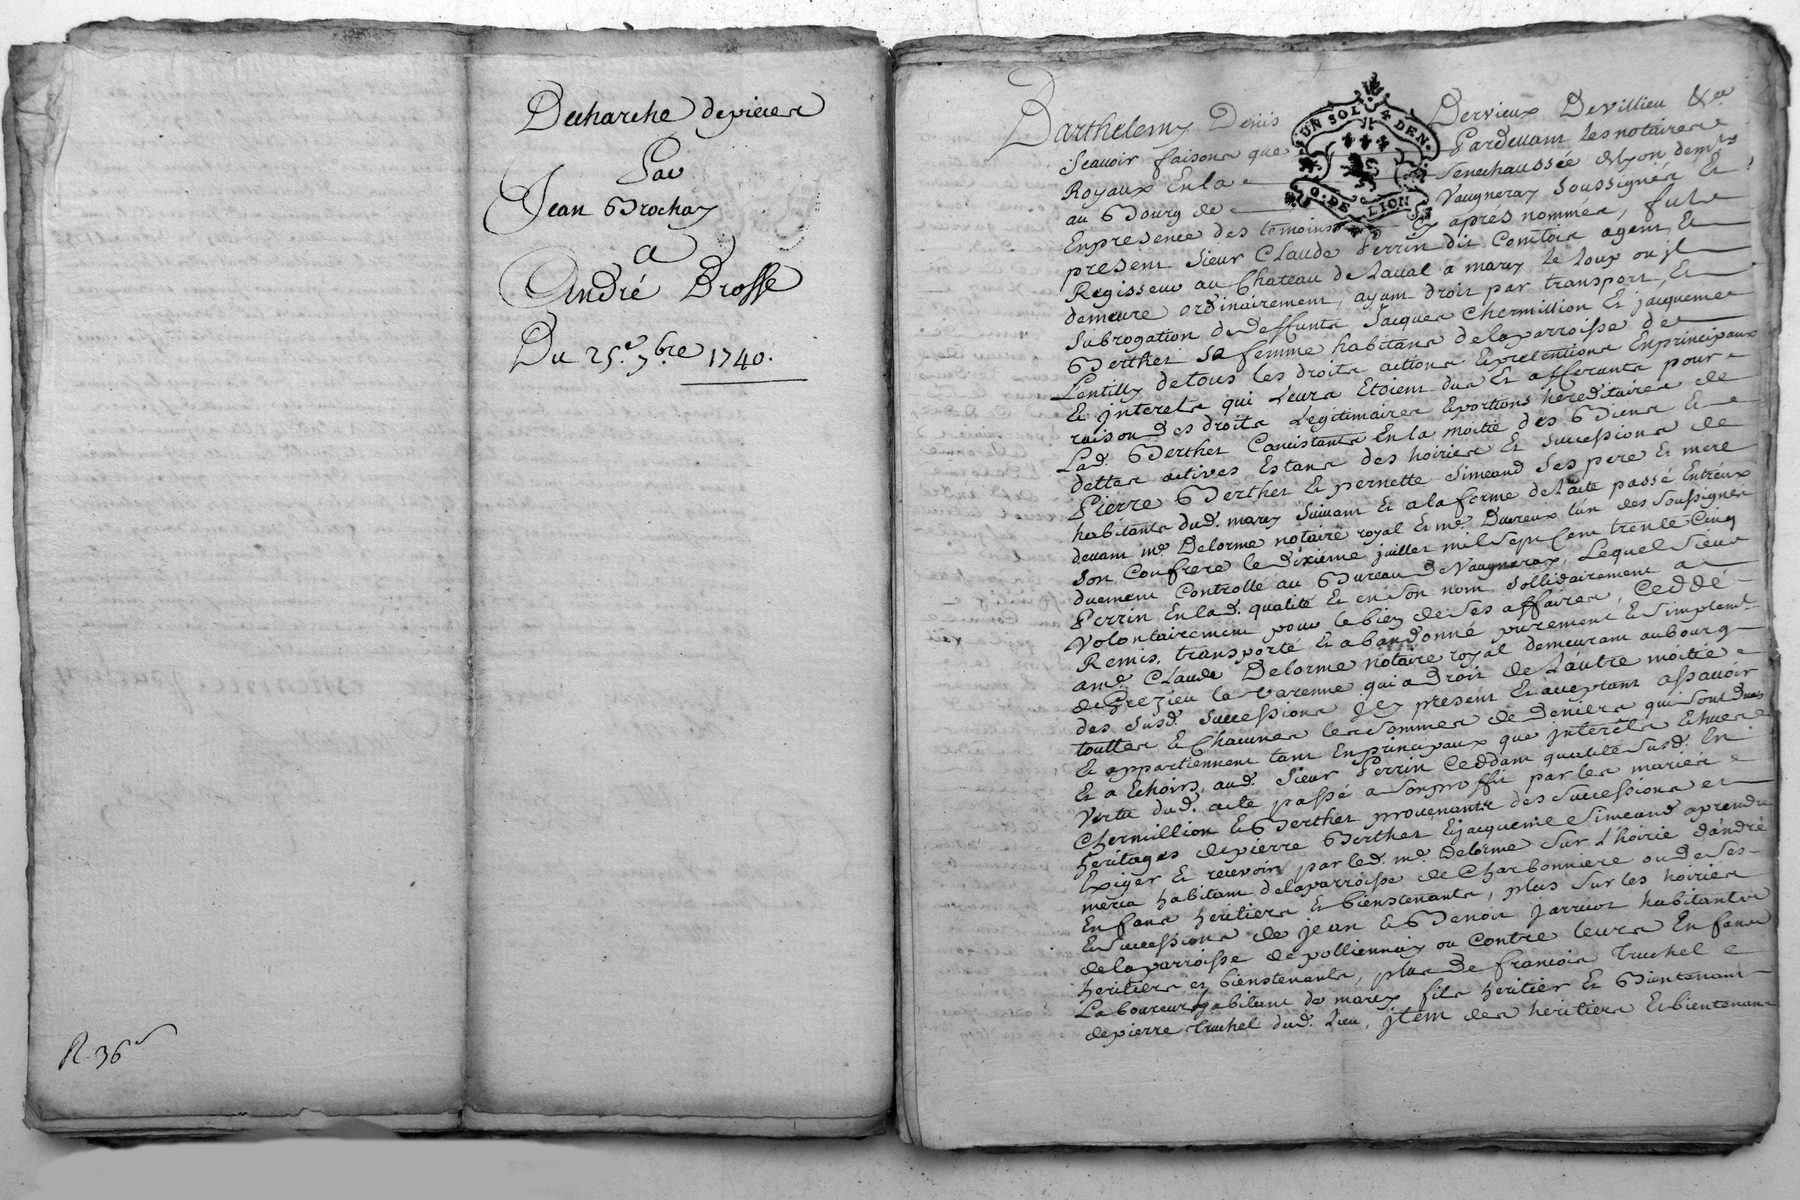 Decharche de pieces
Par
Jean Brochay
A
André Brosse
Du 25.e 7.bre 1740.
R. 36 s
Barthelemy Denis Dervieux De Villieu &a
UN SOL 4 DEN.
G. DE LION
Scavoir faisons que Pardevant les notaires
Royaux En la Senechaussée de Lyon demts
au Bourg de Vaugneray Soussignés Et
En presence des temoins cy apres nommés, fut
present Sieur Claude Perrin dit Comtois agent Et
Regisseur au Chateau de Laval a marcy le Loup ou jl
demeure ordinairement, ayant droit par transport, Et
Subrogation de deffunts Jacques Chermillion Et jacqueme
Berthet Sa femme habitans de la parroisse de
Lentilly de tous les droits actions Et pretentions En principaux
Et jnterets qui Leurs Etoient dus Et afferants pour
raison des droits Legitimaires Et portions hereditaires de
Lad. Berthet Consistants En la moitié des Biens Et
dettes actives Estans des hoiries Et Successions de
Pierre Berthet Et pernette Simeand Ses pere Et mere
habitants dud. marcy Suivant Et a la forme de L'acte passé Entreux
devant me Delorme notaire royal Et me Ducreux L'un des Soussignés
Son Confrere le dixieme juillet mil Sept Cent trente Cinq
duement Controllé au Bureau de Vaugneray, Lequel Sieur
Perrin En lad. qualité Et en Son nom Sollidairement a
Volontairement pour le bien de Ses affaires, Ceddé
Remis, transporté Et abandonné purement Et Simplemt
a me Claude Delorme notaire royal demeurant au bourg
de Grezieu la Varenne qui a Droit de L'autre moitié
des Susd. Successions jcy present Et acceptant assavoir
touttes Et Chacunes les Sommes de deniers qui Sont dues
Et appartiennent tant En principaux que jnterets Echues
Et a Echoirs, aud. Sieur Perrin Ceddant qualité Susd. En
Vertu dud. acte passé a Son proffit par les mariés
Chermillion Et Berthet provenants des Successions et
heritages de pierre Berthet Et jacqueme Simeand a prendre
Exiger Et recevoir par led. me Delorme Sur L'hoirie d'andré
habitant de la parroisse de Charbonniere ou de Ses
Enfans heritiers Et bienstenants, plus Sur les hoiries
Et Successions de jean Et Benoit jarricot habitants
de la parroisse de pollionnay ou Contre leurs Enfans
heritiers et bienstenants, plus de francois Truchet
Laboureur habitant de marcy fils heritier Et Bientenant
de pierre Truchet dud. Lieu, jtem des heritiers Et bientenans